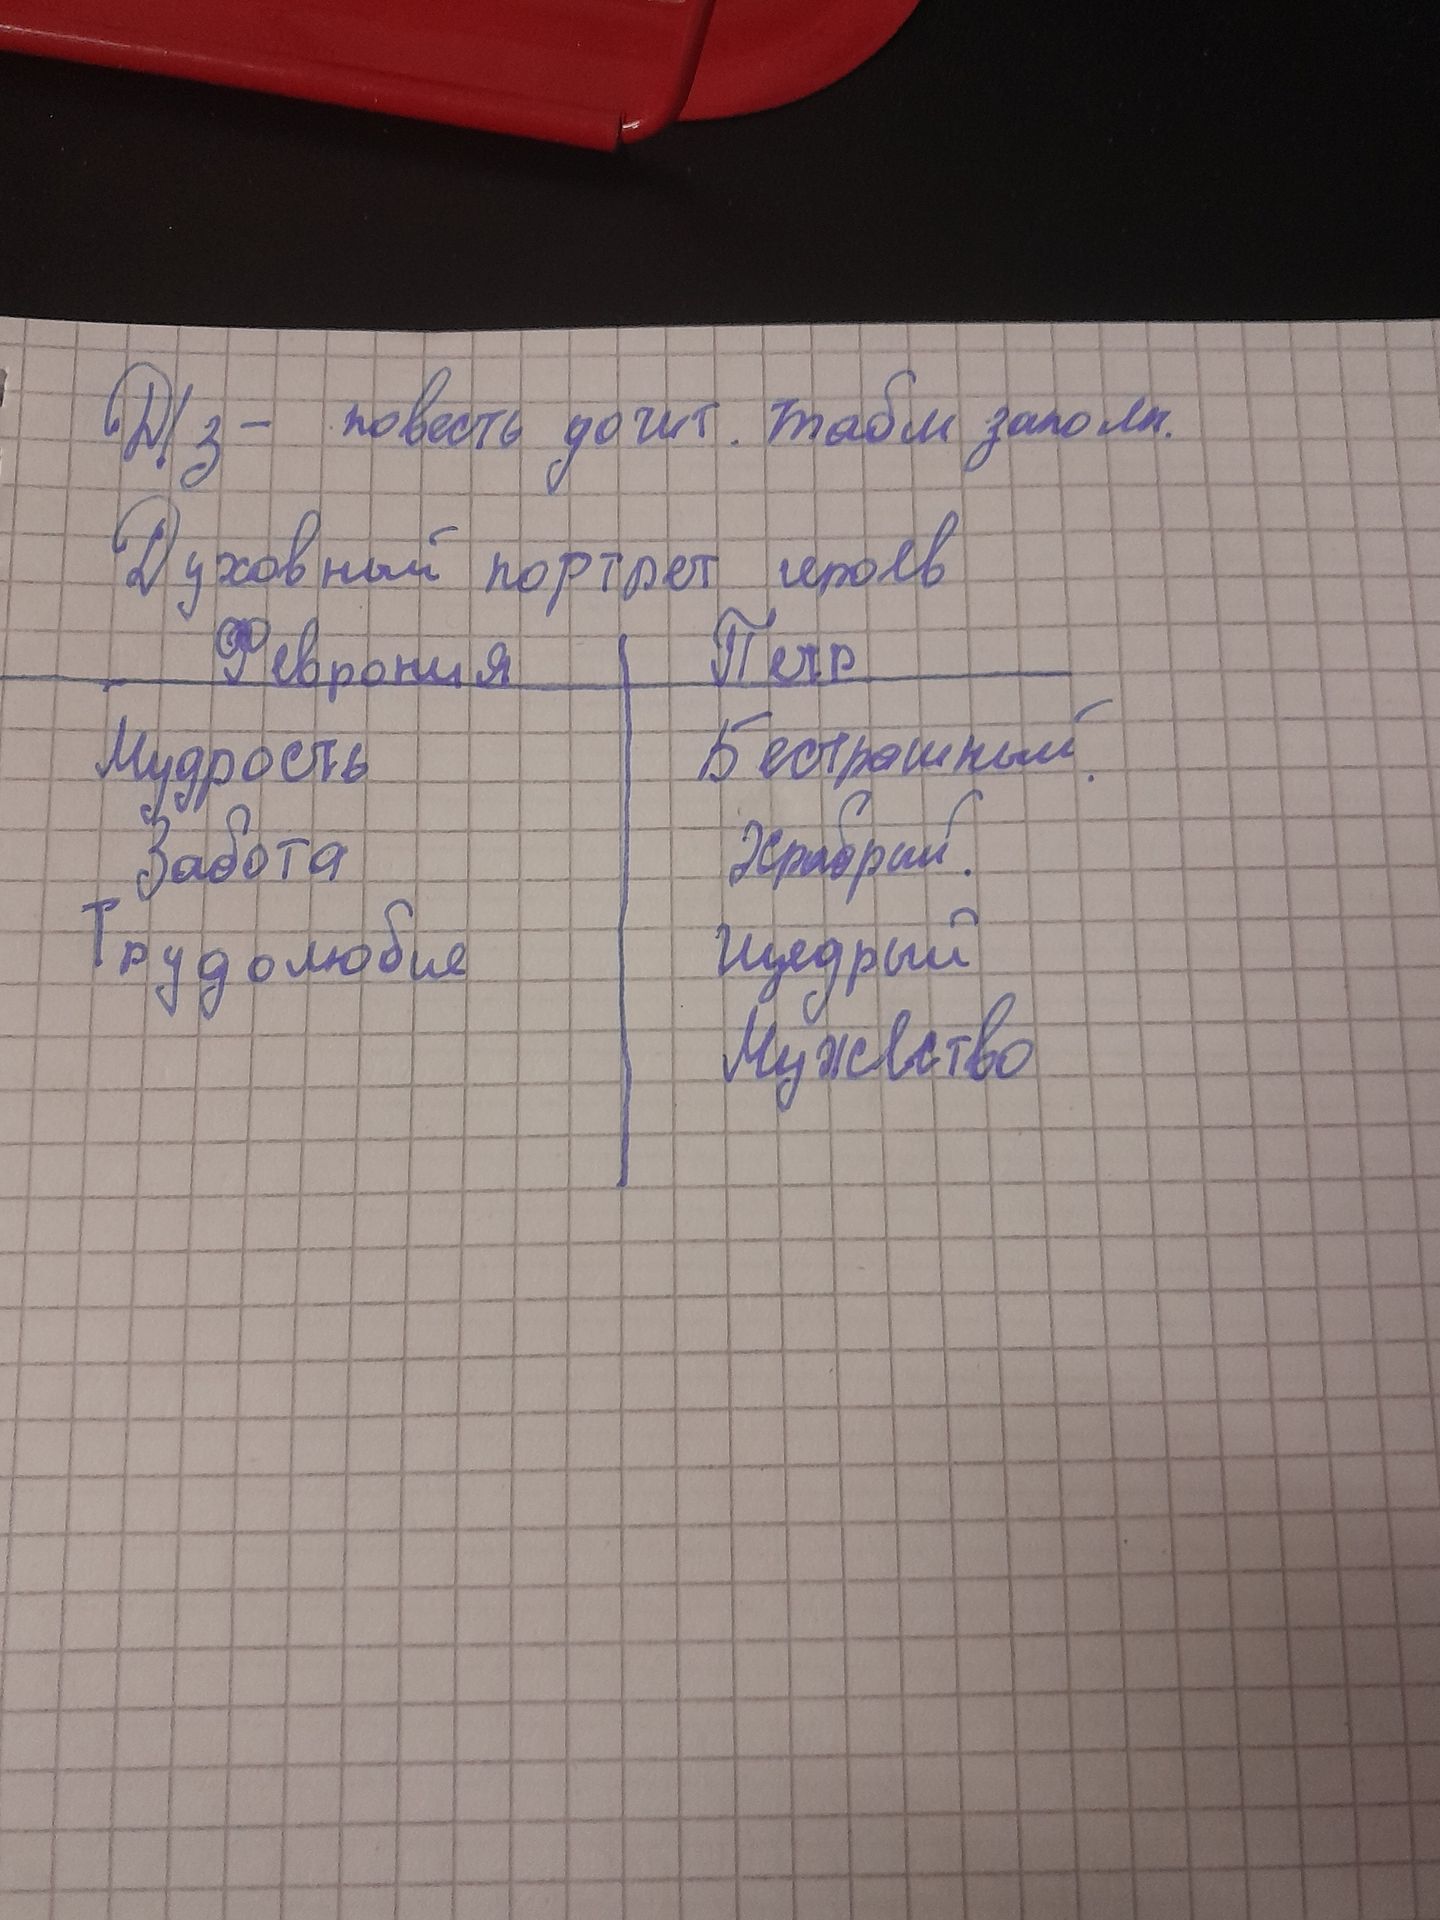 Д/з - повесть дочит. табл заполн.
Духовный портрет героев
Феврония Петр
Мудрость Бестрашный.
Забота Храбрый.
Трудолюбие Щедрый
Мужество